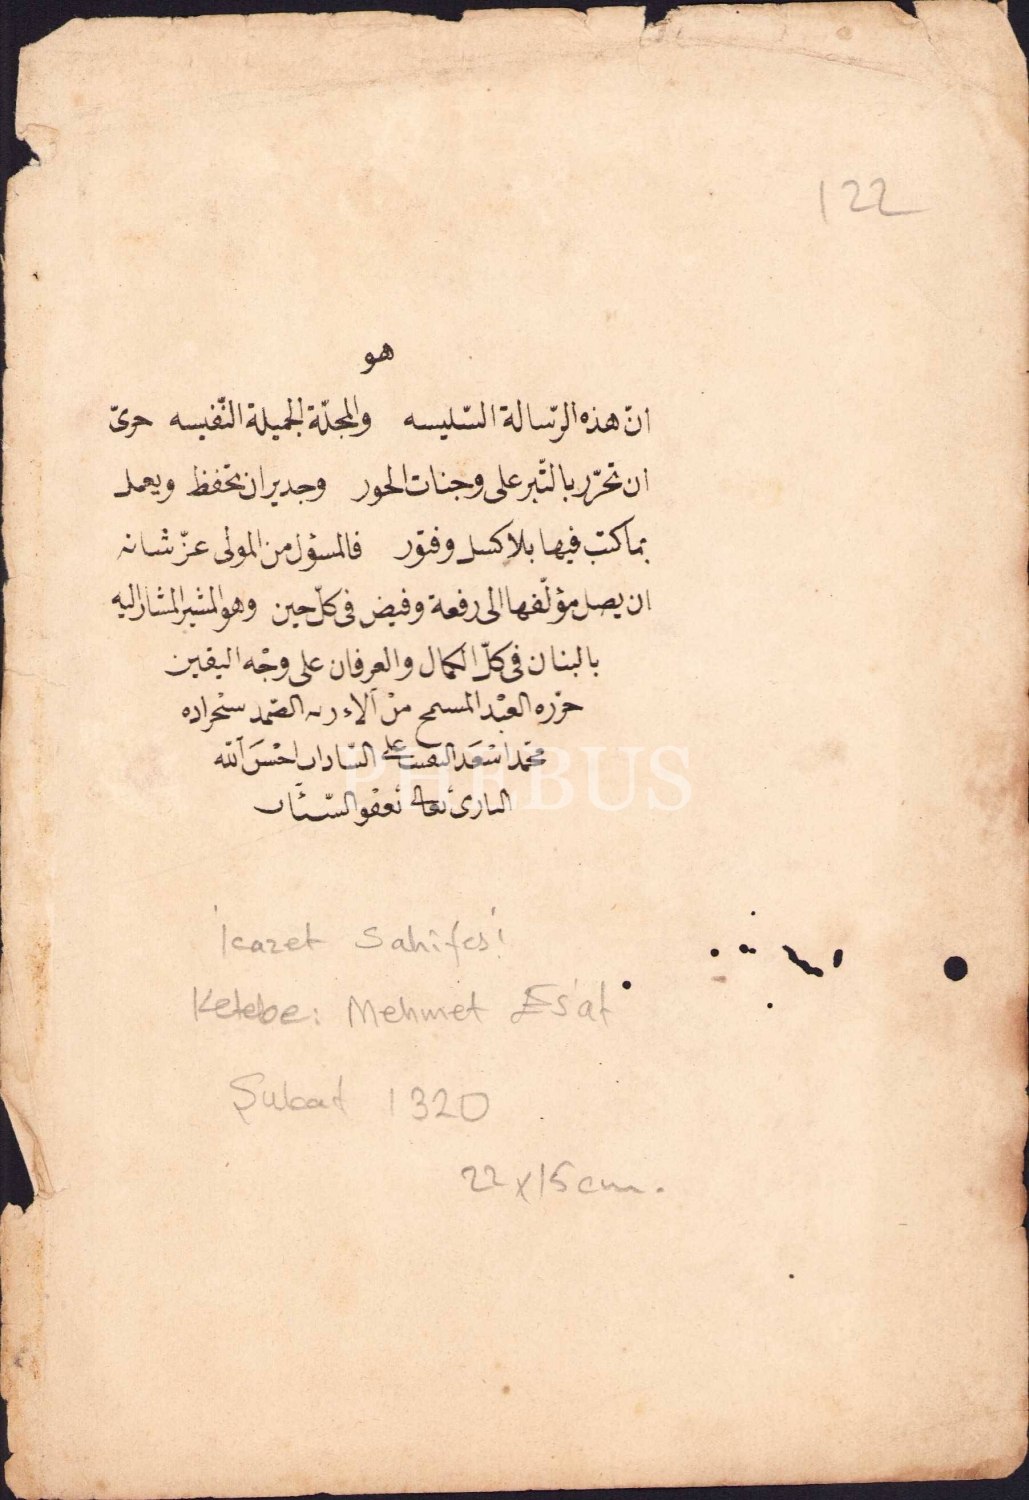 122
هو
انّ هذه الرّسالة السّليسه والمجلّة الجميلة النّفيسه حرىّ
ان تحرّر بالتّبر على وجنات الحور وجدير ان تحفظ ويعمل
بما كتب فيها بلا كسل وفتور فالمسؤل من المولى عزّ شانه
ان يصل مؤلّفها الى رفعة وفيض فى كلّ حين وهو المشير المشار اليه
بالبنان فى كلّ الكمال والعرفان على وجه اليقين
حرّره العبد من آلاء ربه الصّمد
محمّد اسعد على السّادات احسن الله
البارى تعالى
PHEBUS
İcazet Sahifesi
Ketebe: Mehmet Es'at
Şubat 1320
22x15cm.